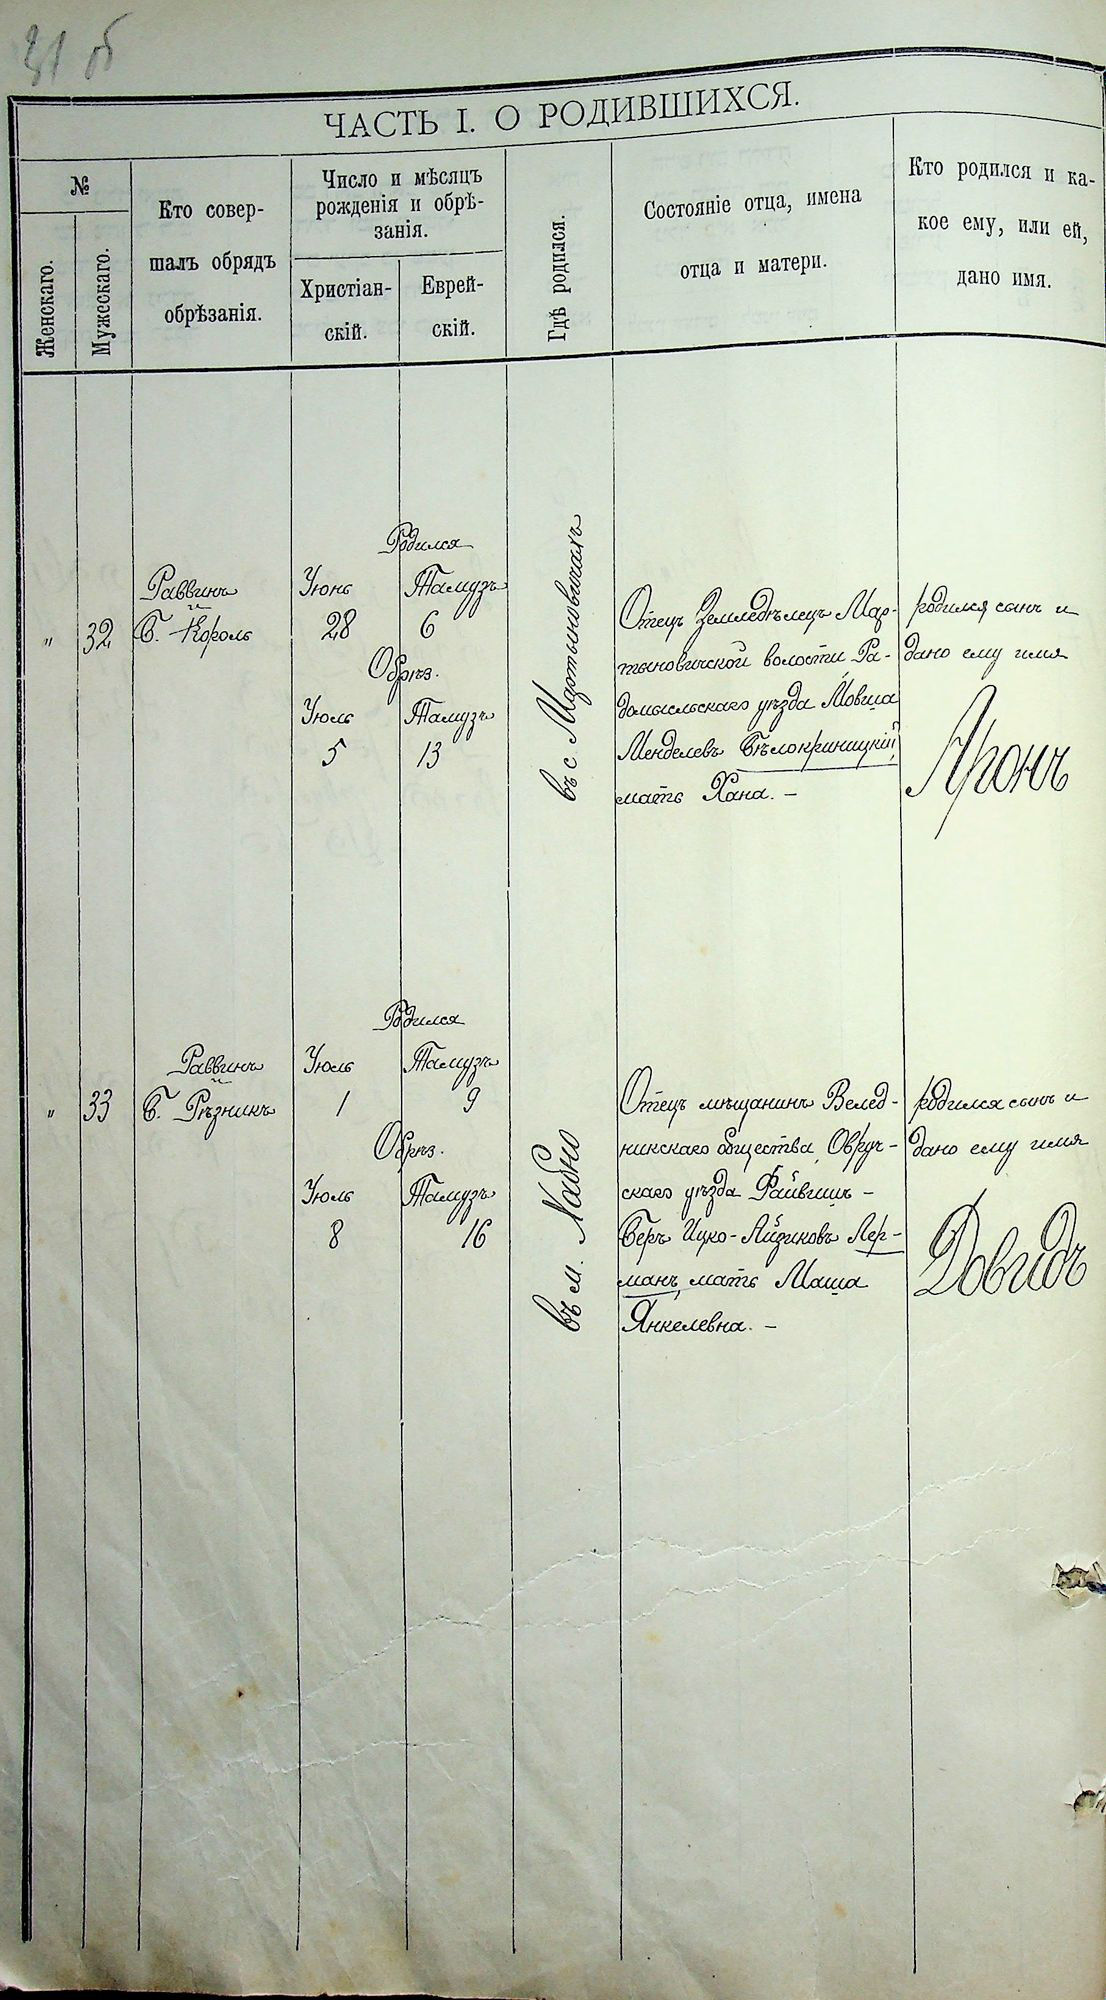 31 об
ЧАСТЬ I. О РОДИВШИХСЯ.
№
Женскаго.
Мужескаго.
Кто совер-
шалъ обрядъ
обрѣзанія.
Число и мѣсяцъ
рожденія и обрѣ-
занія.
Христіан-
скій.
Еврей-
скій.
Гдѣ родился.
Состояніе отца, имена
отца и матери.
Кто родился и ка-
кое ему, или ей,
дано имя.
"
32
Раввинъ
и
Б. Король
Родился
Іюнь Тамузъ
28 6
Обрѣз.
Іюль Тамузъ
5 13
въ с. Мартыновичахъ
Отецъ Земледѣлецъ Мар-
тыновичской волости Ра-
домысльскаго уѣзда Мовша
Менделевъ Бѣлокриницкій,
мать Хана. –
родился сынъ и
дано ему имя
Аронъ
"
33
Раввинъ
и
Б. Рѣзникъ
Родился
Іюль Тамузъ
1 9
Обрѣз.
Іюль Тамузъ
8 16
въ м. Хабно
Отецъ мѣщанинъ Велед-
никскаго общества, Овруч-
скаго уѣзда Файвишъ –
Беръ Ицко-Айзиковъ Лер-
манъ, мать Маша
Янкелевна. –
родился сынъ и
дано ему имя
Довидъ